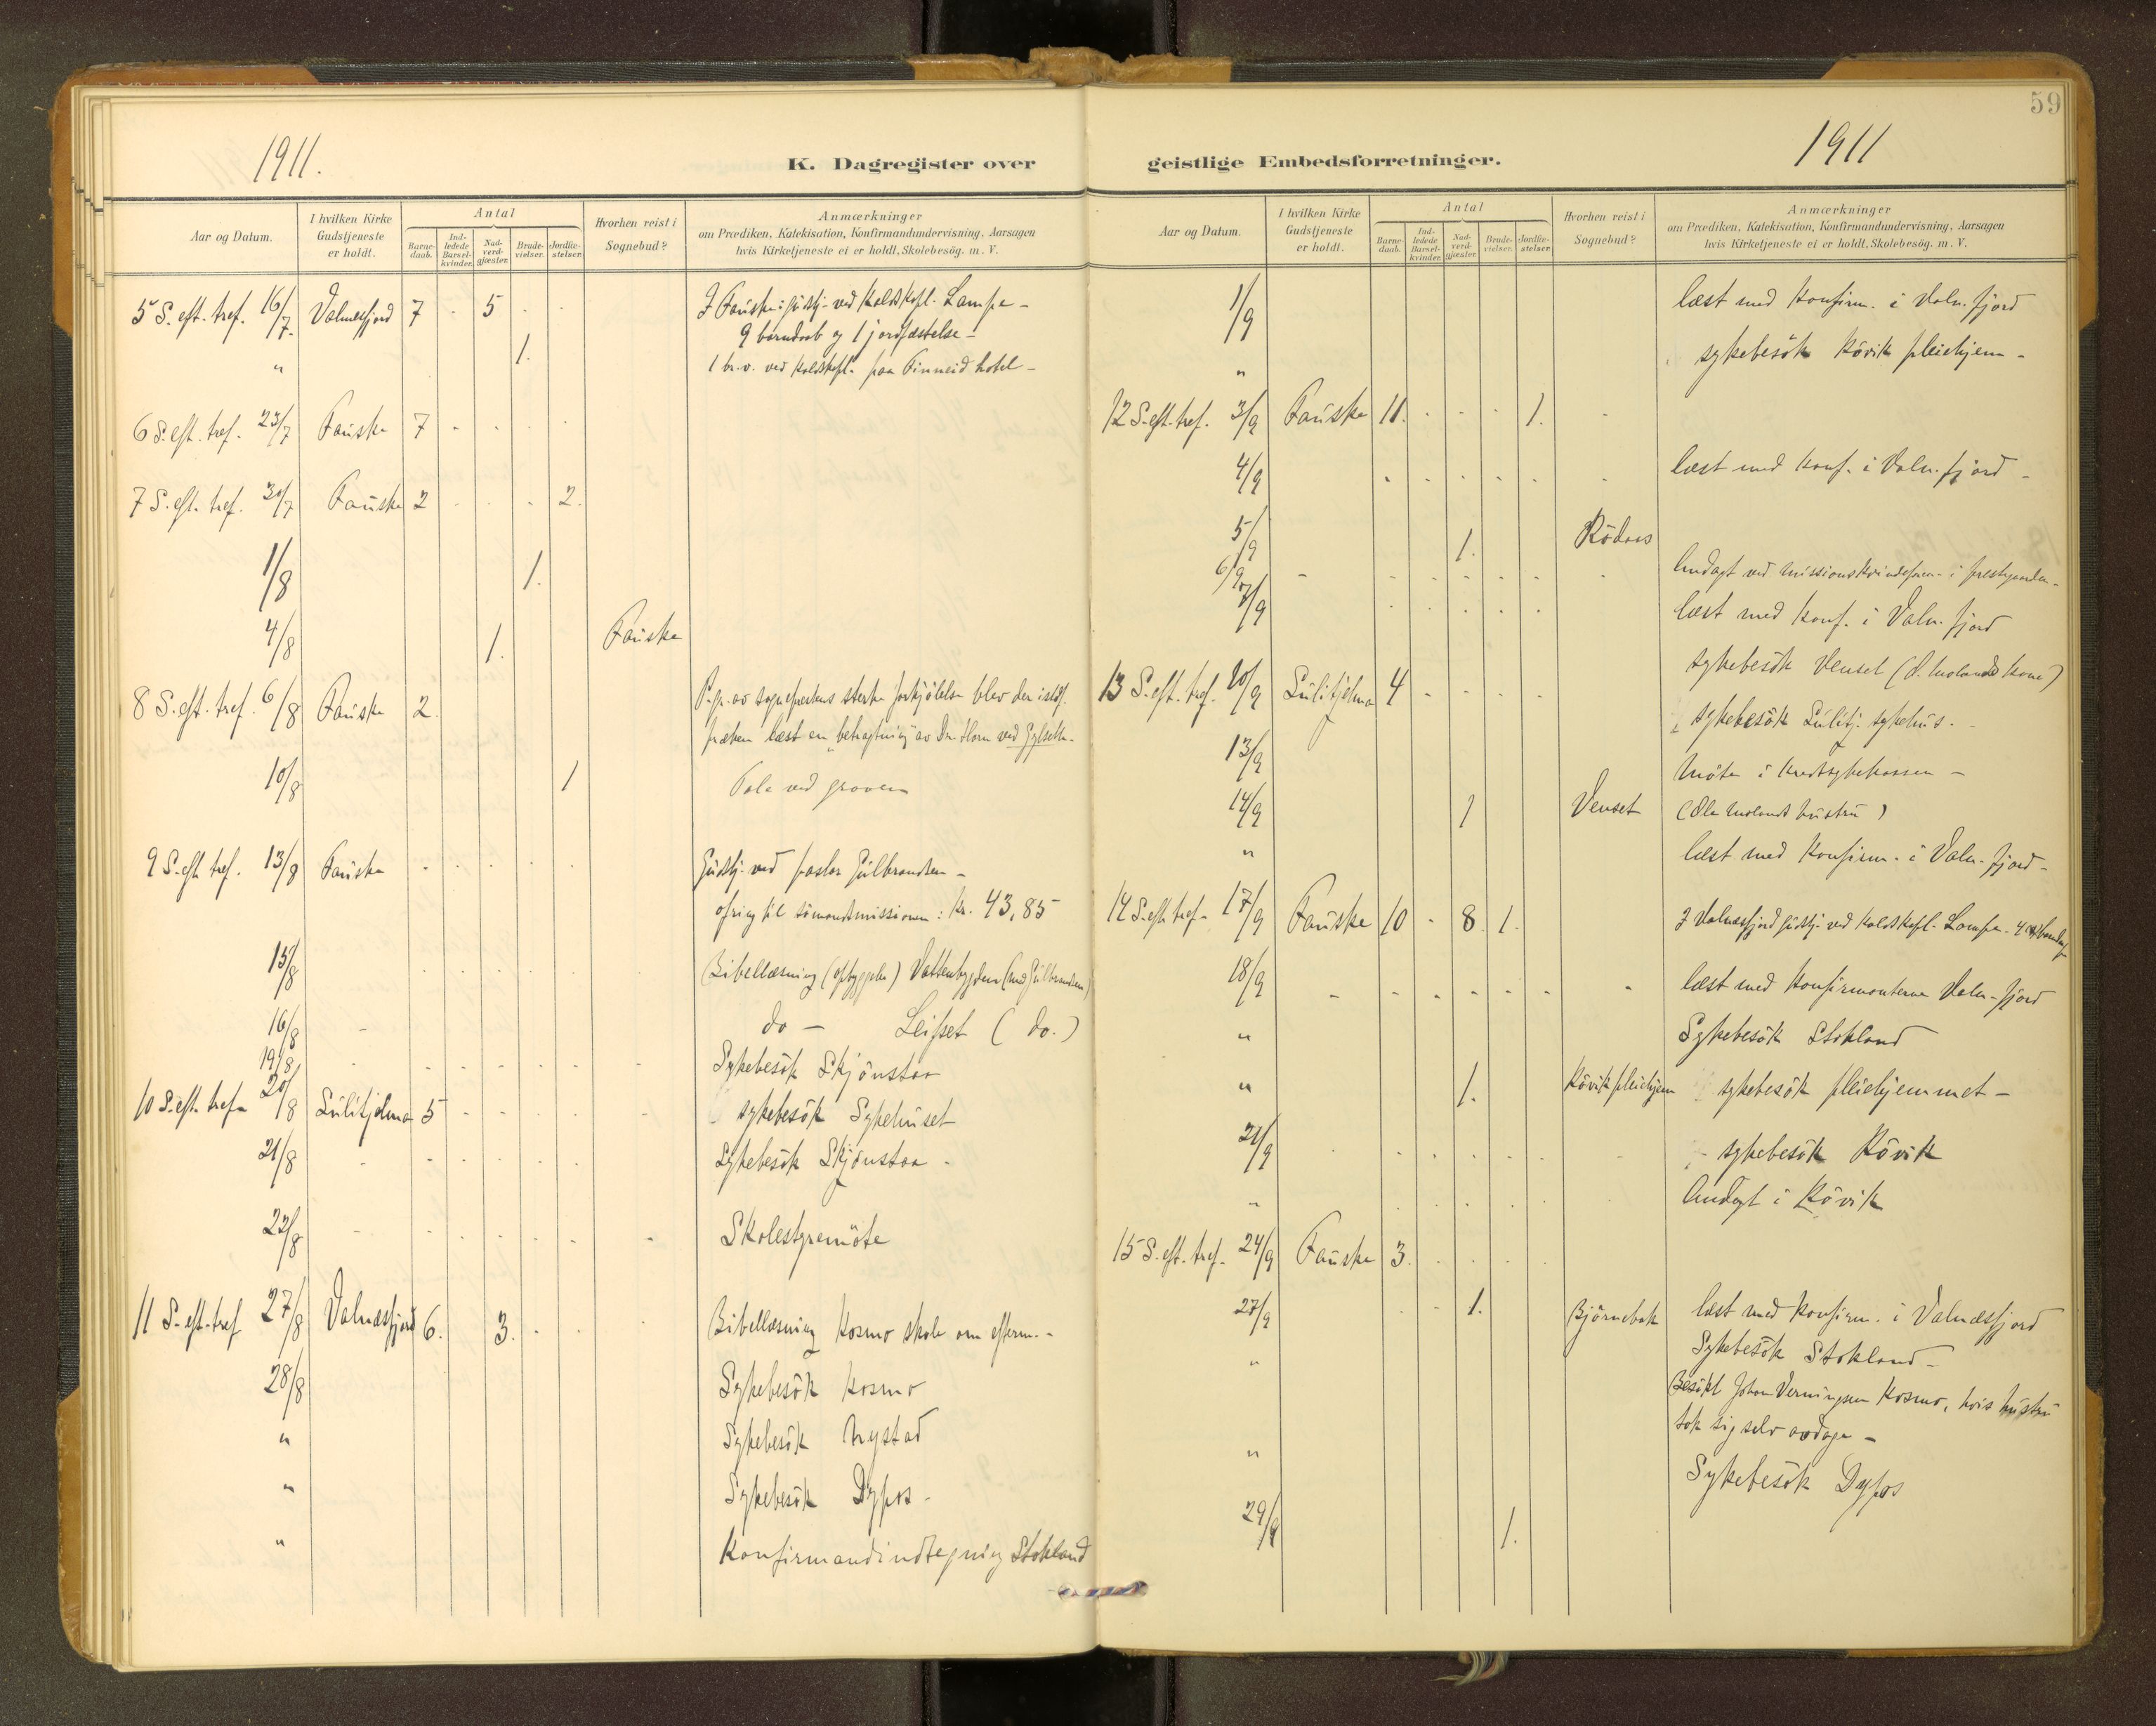 1911.
K. Dagregister over
Aar og Datum.
I hvilken Kirke Gudstjeneste er holdt.
Antal
Barne-daab.
Ind-ledede Barsel-kvinder.
Nad-verd-gjæster.
Brude-vielser.
Jordfæ-stelser.
Hvorhen reist i Sognebud?
Anmærkninger
om Prædiken, Katekisation, Konfirmandundervisning, Aarsagen
hvis Kirketjeneste ei er holdt, Skolebesög. m. V.
5 S. eft. tref. 16/7. Valnesfjord 7 - 5 - - I Fauske: gudstj. ved kaldskapl. Lampe -
9 barnedaab og 1 jordfæstelse -
" 1. 1 br.v. ved kaldskapl. paa Finneid hotel -
6 S. eft. tref. 23/7 Fauske 7 - - - -
7 S. eft. tref. 30/7 Fauske 2 - - - 2.
1/8 1.
4/8 1. Fauske
8 S. eft. tref. 6/8 Fauske 2. P.gr. av sogneprestens sterke forkjölelse blev der istedf.
præken læst en "betragtning" av Dr. Horn ved
10/8 1 Tale ved graven
9 S. eft. tref. 13/8 Fauske - - - - - Gudstj. ved pastor Gulbrandsen -
ofring til sömandsmissionen: kr. 43,85
15/8 Bibellæsning (opbyggelse) Vattenbygden (med Gulbrandsen)
16/8 - do - Leifset ( do. )
19/8 - - - - - - - Sykebesök Skjönstaa
10 S. eft. tref. 20/8 Sulitjelma 5 - - - - - sykebesök Sykehuset
21/8 - - - - - - Sykebesök Skjönstaa -
22/8 - - - - - - - Skolestyremöte
11 S. eft. tref 27/8 Valnæsfjord 6. 3. - - - Bibellæsning Kosmo skole om efterm. -
28/8 Sykebesök Kosmo
" Sykebesök Nystad
" Sykebesök Dypos -
" Konfirmandindtegning Stokland
59
1911
geistlige Embedsforretninger.
Aar og Datum.
I hvilken Kirke Gudstjeneste er holdt.
Antal
Barne-daab.
Ind-ledede Barsel-kvinder.
Nad-verd-gjæster.
Brude-vielser.
Jordfæ-stelser.
Hvorhen reist i Sognebud?
Anmærkninger
om Prædiken, Katekisation, Konfirmandundervisning, Aarsagen
hvis Kirketjeneste ei er holdt, Skolebesög. m. V.
1/9 læst med konfirm. i Valn.fjord
" sykebesök Rövik pleiehjem -
12 S. eft. tref. 3/9 Fauske 11. - - - 1. -
4/9 - - - - - - læst med konf. i Valn.fjord -
5/9 1. Rödaas
6/9 - - - - - - - Andagt ved missionskvindeforen. i prestegaarden -
7/9 - - - - - læst med konf. i Valn.fjord
sykebesök Venset (O. Molands kone)
13 S. eft. tref. 10/9 Sulitjelma 4 - - - - sykebesök Sulitj. sykehus.
13/9 Möte i kredssykekassen -
14/9 1 Venset (Ole Molands hustru)
" læst med konfirm. i Valn.fjord -
14 S. eft. tref. 17/9 Fauske 10 - 8. 1. I Valnæsfjord gudstj. ved kaldskapl. Lampe - 4
18/9 - - - - - - - læst med konfirmanterne Valn.fjord
" Sykebesök Stokland
" 1. Rövik pleiehjem sykebesök pleiehjemmet -
21/9 - - - - - - - sykebesök Rövik
" - - - - - Andagt i Rövik
15 S. eft. tref. 24/9 Fauske 3. - - - -
27/9 - - 1. Björnebak læst med konfirm. i Valnæsfjord
" Sykebesök Stokland -
Besökt Johan Verningsen Kosmo, hvis hustru
tok sig selv avdage -
" Sykebesök Dypos
29/9 1.